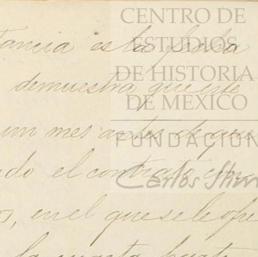 CENTRO DE
ESTUDIOS
DE HISTORIA
DE MÉXICO
FUNDACIÓN
Carlos
tancia es la
demuestra que este
un mes antes de que
do el contrato
os, en el que se le
la cuarta parte